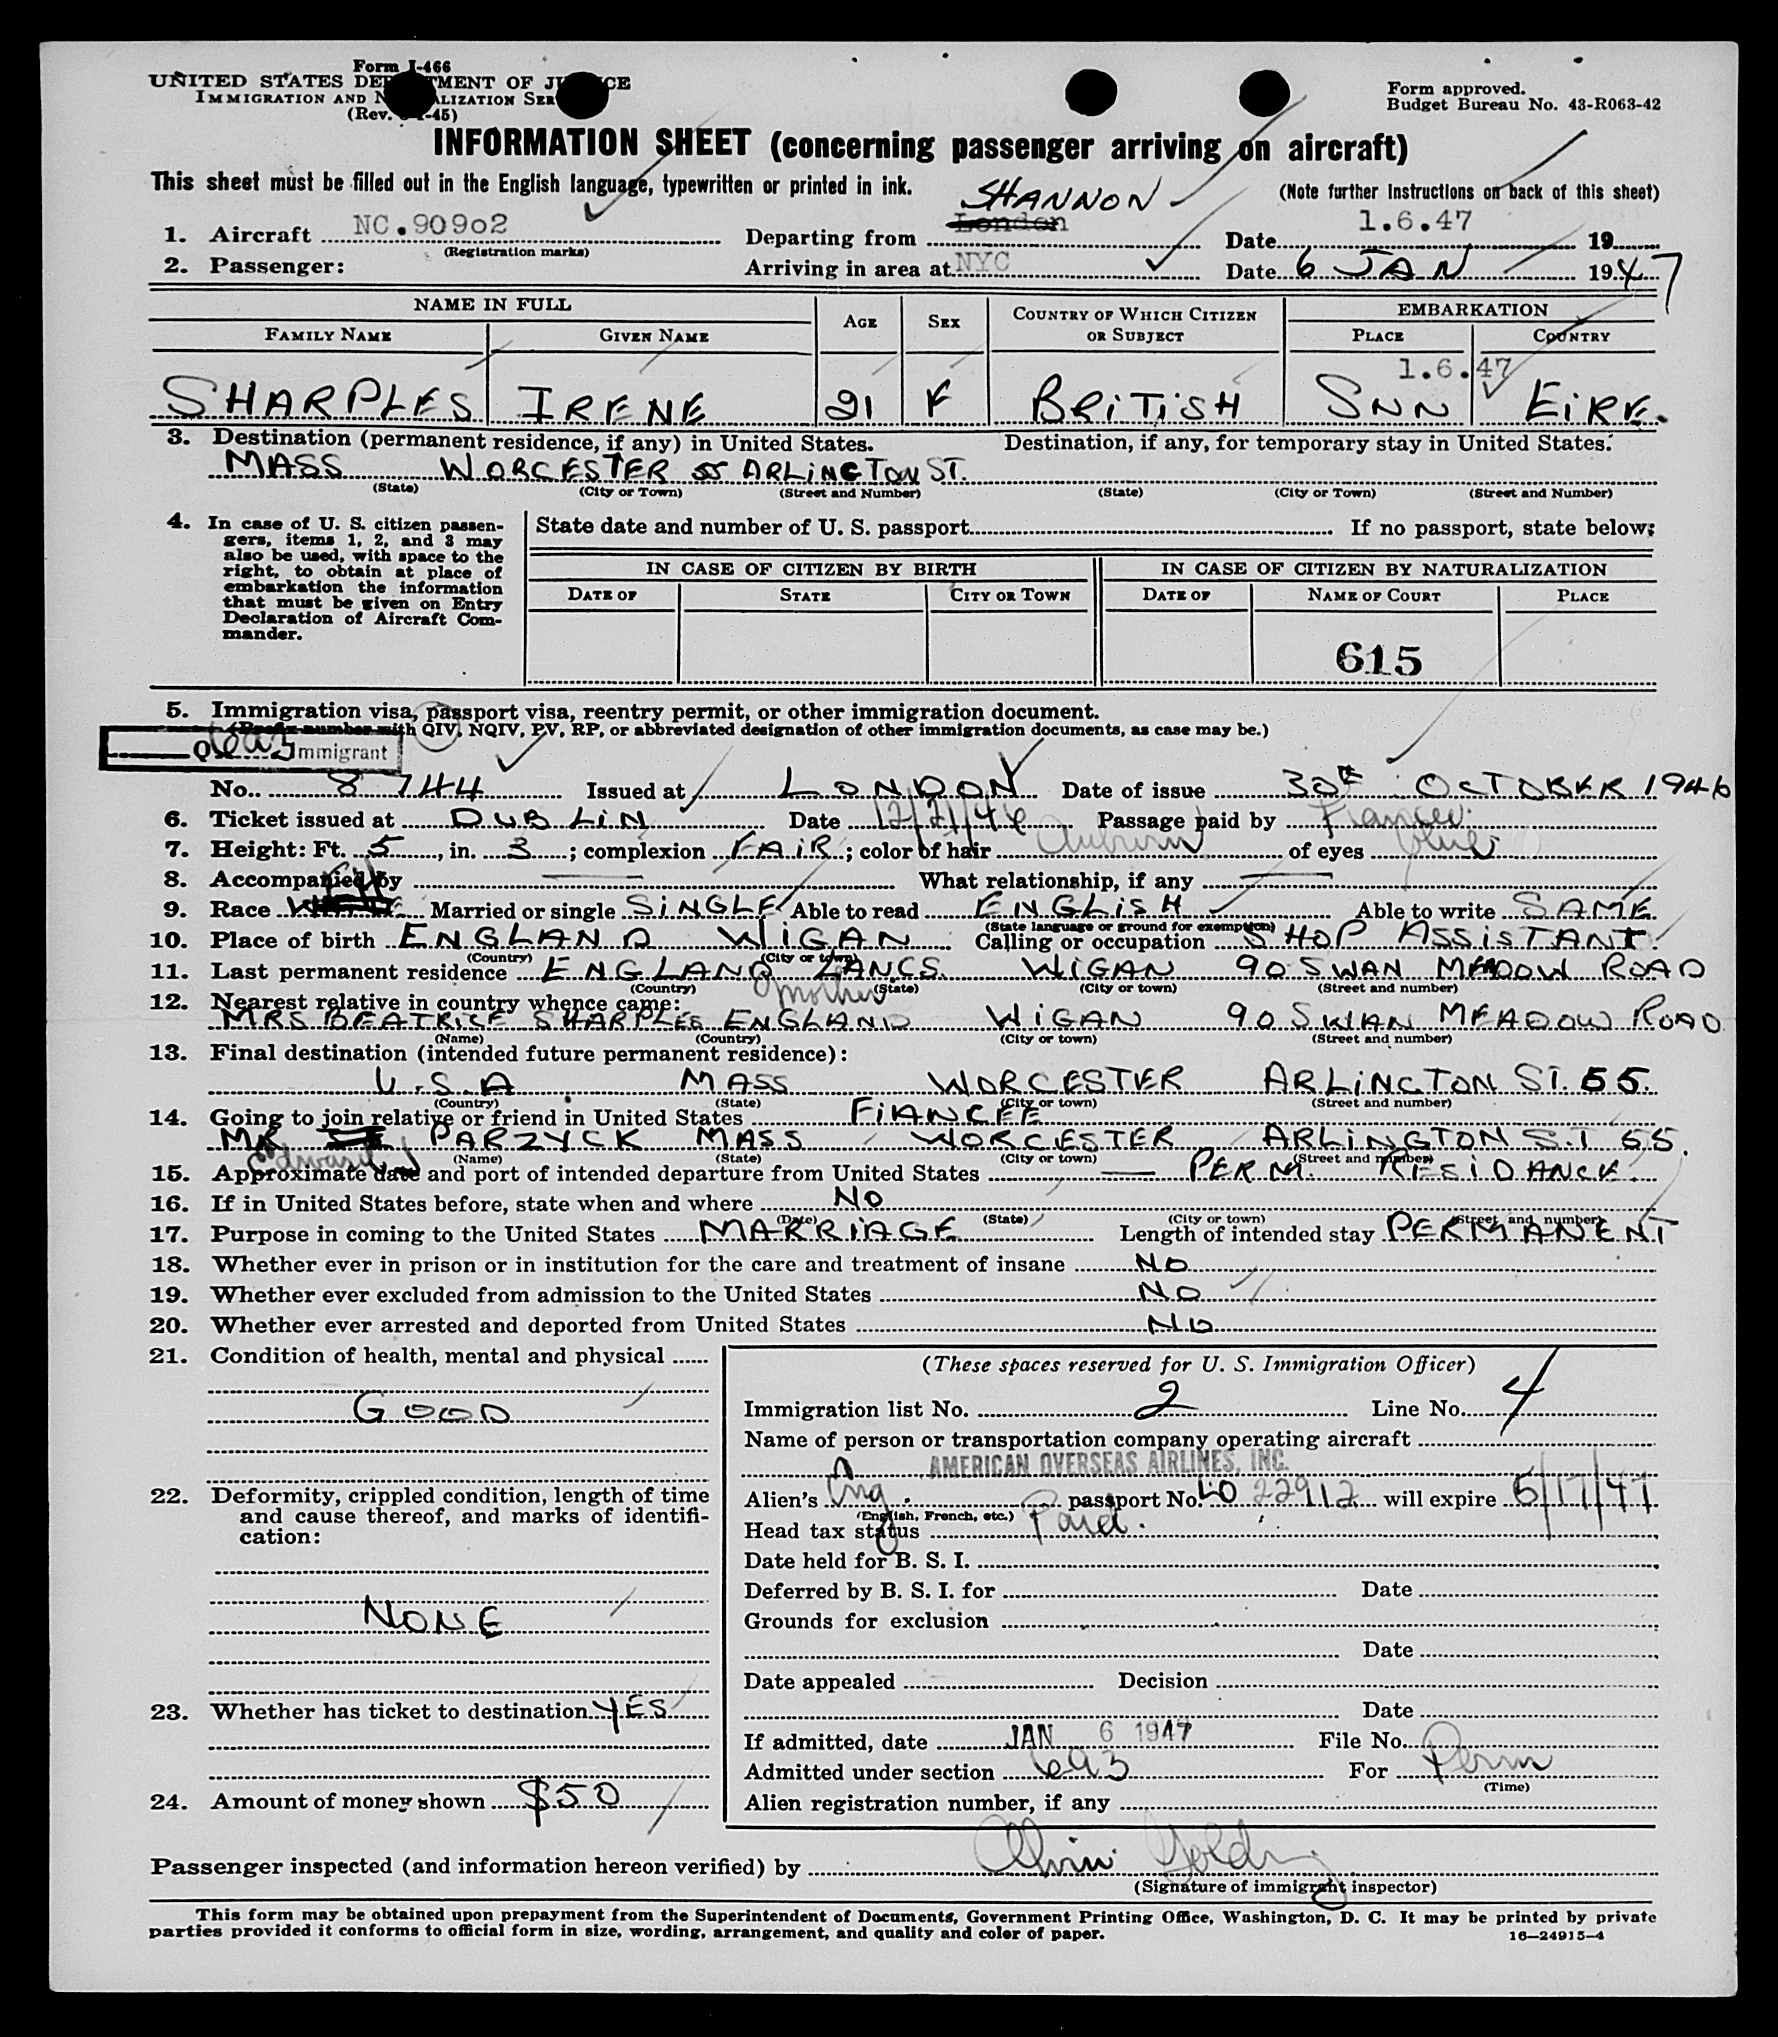 Form I-466
UNITED STATES DEPARTMENT OF JUSTICE
IMMIGRATION AND NATURALIZATION SERVICE
(Rev. -45)
Form approved.
Budget Bureau No. 43-R063-42
INFORMATION SHEET (concerning passenger arriving on aircraft)
This sheet must be filled out in the English language, typewritten or printed in ink.
(Note further instructions on back of this sheet)
1. Aircraft NC.90902 (Registration marks) Departing from London SHANNON Date 1.6.47 19
2. Passenger: Arriving in area at NYC Date 6 JAN 1947
NAME IN FULL AGE SEX COUNTRY OF WHICH CITIZEN OR SUBJECT EMBARKATION
FAMILY NAME GIVEN NAME PLACE COUNTRY
1.6.47
SHARPLES IRENE 21 F BRITISH SNN EIRE.
3. Destination (permanent residence, if any) in United States. Destination, if any, for temporary stay in United States.
MASS WORCESTER 55 ARLINGTON ST.
(State) (City or Town) (Street and Number) (State) (City or Town) (Street and Number)
4. In case of U. S. citizen passengers, items 1, 2, and 3 may also be used, with space to the right, to obtain at place of embarkation the information that must be given on Entry Declaration of Aircraft Commander.
State date and number of U. S. passport If no passport, state below:
IN CASE OF CITIZEN BY BIRTH IN CASE OF CITIZEN BY NATURALIZATION
DATE OF STATE CITY OR TOWN DATE OF NAME OF COURT PLACE
615
5. Immigration visa, passport visa, reentry permit, or other immigration document.
(Prefix number with QIV, NQIV, PV, RP, or abbreviated designation of other immigration documents, as case may be.)
Q 6a3 mmigrant
No. 8744 Issued at LONDON Date of issue 30th OCTOBER 1946
6. Ticket issued at DUBLIN Date 12/21/46 Passage paid by Fiancee.
7. Height: Ft. 5, in. 3; complexion FAIR; color of hair Auburn of eyes blue
8. Accompanied by — What relationship, if any —
9. Race Married or single SINGLE Able to read ENGLISH Able to write SAME.
(State language or ground for exemption)
10. Place of birth ENGLAND WIGAN Calling or occupation SHOP ASSISTANT.
(Country) (City or town)
11. Last permanent residence ENGLAND LANCS. WIGAN 90 SWAN MEADOW ROAD
(Country) (State) (City or town) (Street and number)
12. Nearest relative in country whence came: mother
MRS BEATRICE SHARPLES ENGLAND WIGAN 90 SWAN MEADOW ROAD
(Name) (Country) (City or town) (Street and number)
13. Final destination (intended future permanent residence):
U.S.A MASS WORCESTER ARLINGTON ST. 55.
(Country) (State) (City or town) (Street and number)
14. Going to join relative or friend in United States FIANCEE
MR Edward PARZYCK MASS WORCESTER ARLINGTON ST 55.
(Name) (State) (City or town) (Street and number)
15. Approximate date and port of intended departure from United States — PERM. RESIDANCE.
16. If in United States before, state when and where NO
(Date) (State) (City or town) (Street and number)
17. Purpose in coming to the United States MARRIAGE Length of intended stay PERMANENT
18. Whether ever in prison or in institution for the care and treatment of insane NO
19. Whether ever excluded from admission to the United States NO
20. Whether ever arrested and deported from United States NO
21. Condition of health, mental and physical
GOOD
22. Deformity, crippled condition, length of time and cause thereof, and marks of identification:
NONE
23. Whether has ticket to destination YES
24. Amount of money shown $50
(These spaces reserved for U. S. Immigration Officer)
Immigration list No. 2 Line No. 4
Name of person or transportation company operating aircraft
AMERICAN OVERSEAS AIRLINES, INC.
Alien's Eng. passport No. LO 22912 will expire 5/17/47
(English, French, etc.)
Head tax status Paid.
Date held for B. S. I.
Deferred by B. S. I. for Date
Grounds for exclusion
Date
Date appealed Decision
Date
If admitted, date JAN 6 1947 File No.
Admitted under section 6a3 For Perm
(Time)
Alien registration number, if any
Passenger inspected (and information hereon verified) by
(Signature of immigrant inspector)
This form may be obtained upon prepayment from the Superintendent of Documents, Government Printing Office, Washington, D. C. It may be printed by private
parties provided it conforms to official form in size, wording, arrangement, and quality and color of paper.
16—24915-4